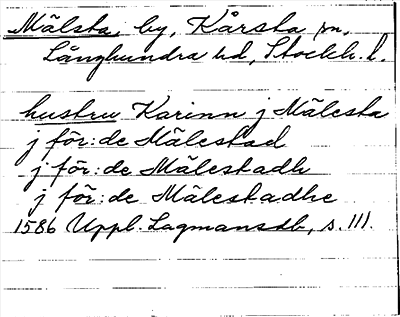 Mälsta, by, Kårsta sn,
Långhundra hd, Stockh. l.
hustru Karinn j Mälesta
j för:de Mälestad
j för:de Mälestadh
j för:de Mälestadhe
1586 Uppl. Lagmansdb, s. 111.